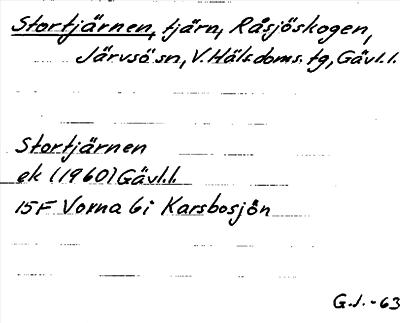 Stortjärnen, tjärn, Råsjöskogen,
Järvsö sn, V. Häls. doms. tg, Gävl. l.
Stortjärnen
ek (1960) Gävl. l.
15F Vorna 6i Karsbosjön
G. J. -63